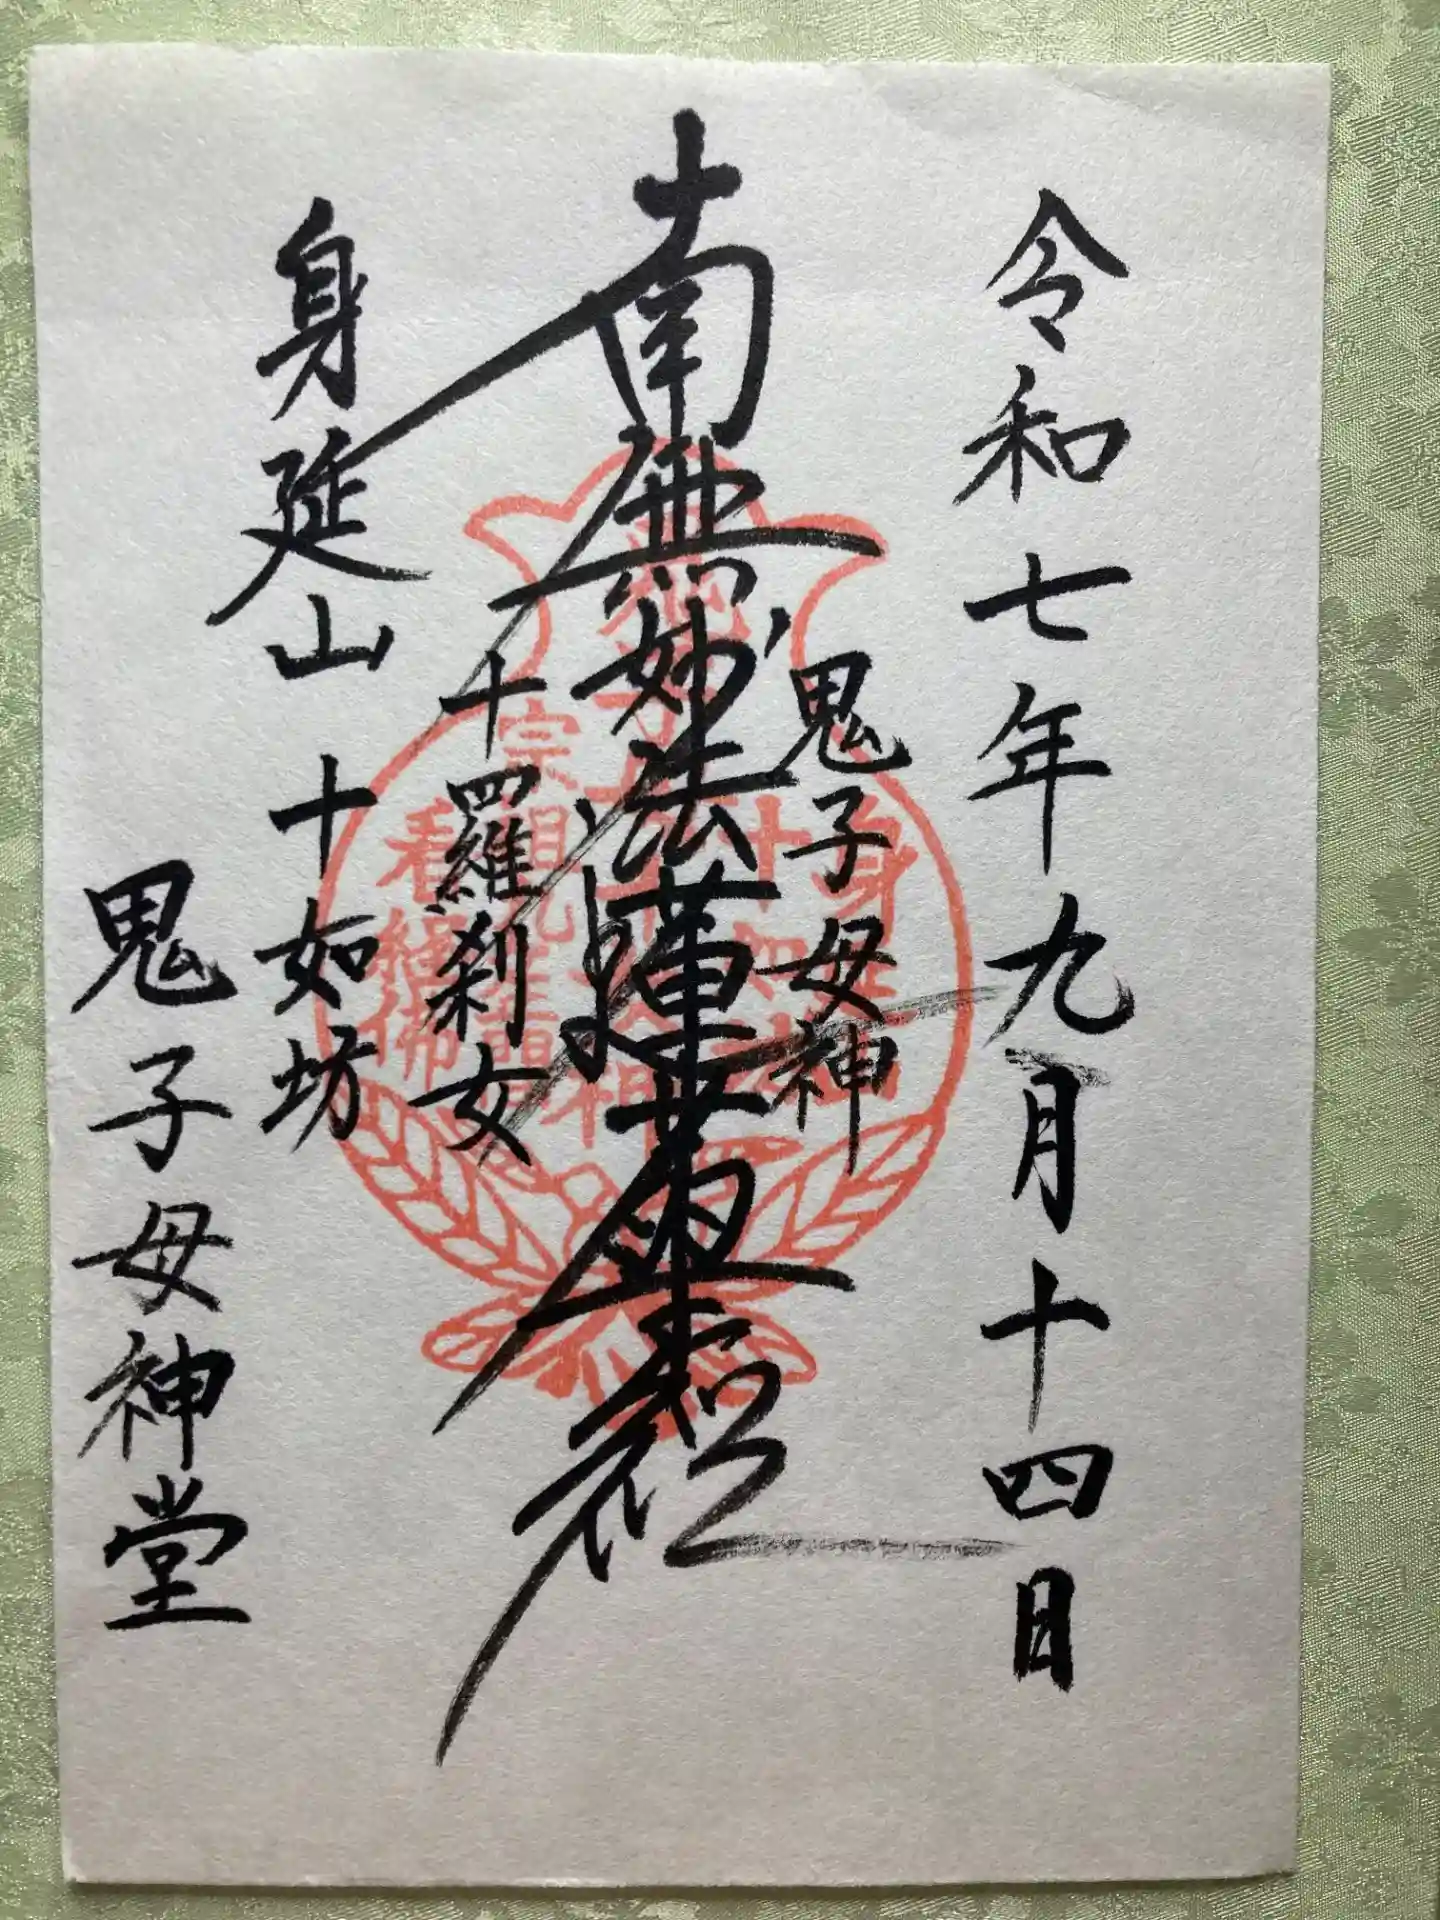 令和七年九月十四日
鬼子母神
南無妙法蓮華経
十羅刹女
身延山 十如坊
鬼子母神堂